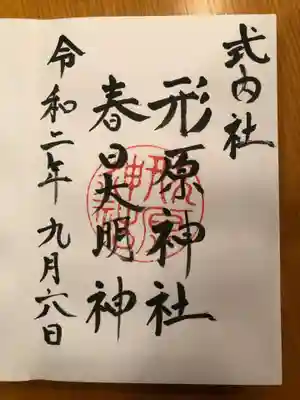 式内社
形原神社
春日大明神
令和二年九月六日